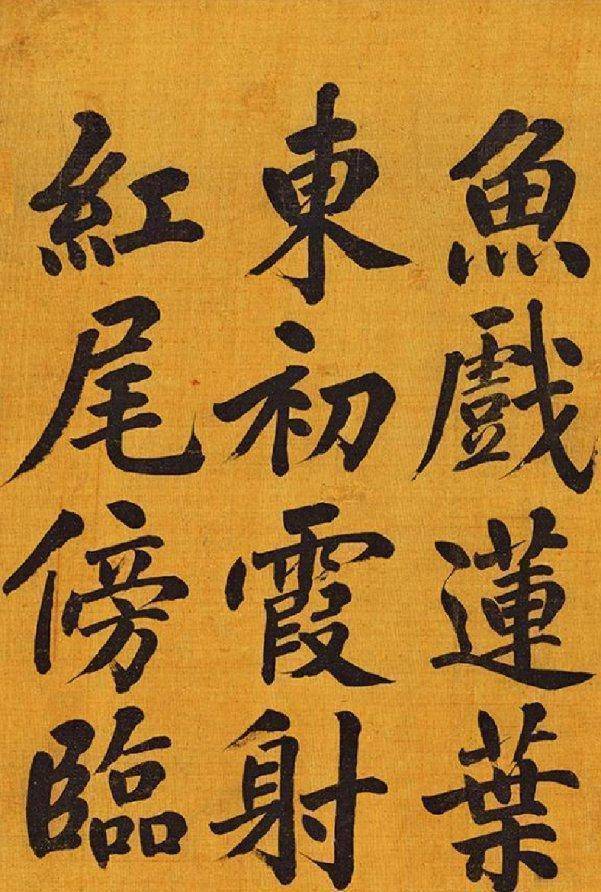 魚戲蓮葉
東初霞射
紅尾傍臨